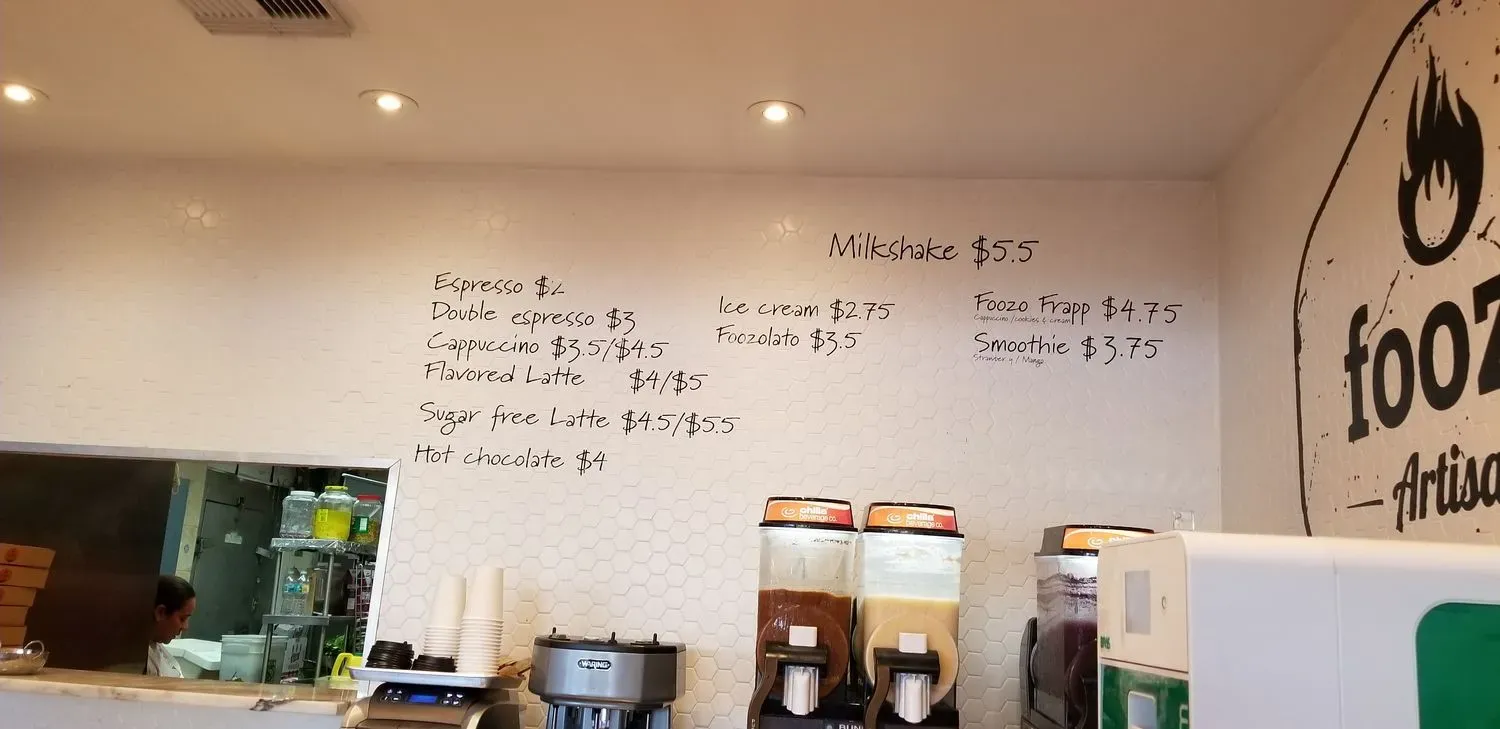 Milkshake $5.5
Espresso $2
Double espresso $3
Cappuccino $3.5/$4.5
Flavored Latte $4/$5
Sugar free Latte $4.5/$5.5
Hot chocolate $4
Ice cream $2.75
Foozolato $3.5
Foozo Frapp $4.75
Cappuccino / cookies & cream
Smoothie $3.75
Strawber y / Mango
fooz
Artisa
chilla
beverage co.
chilla
beverage co.
WARING
BUN